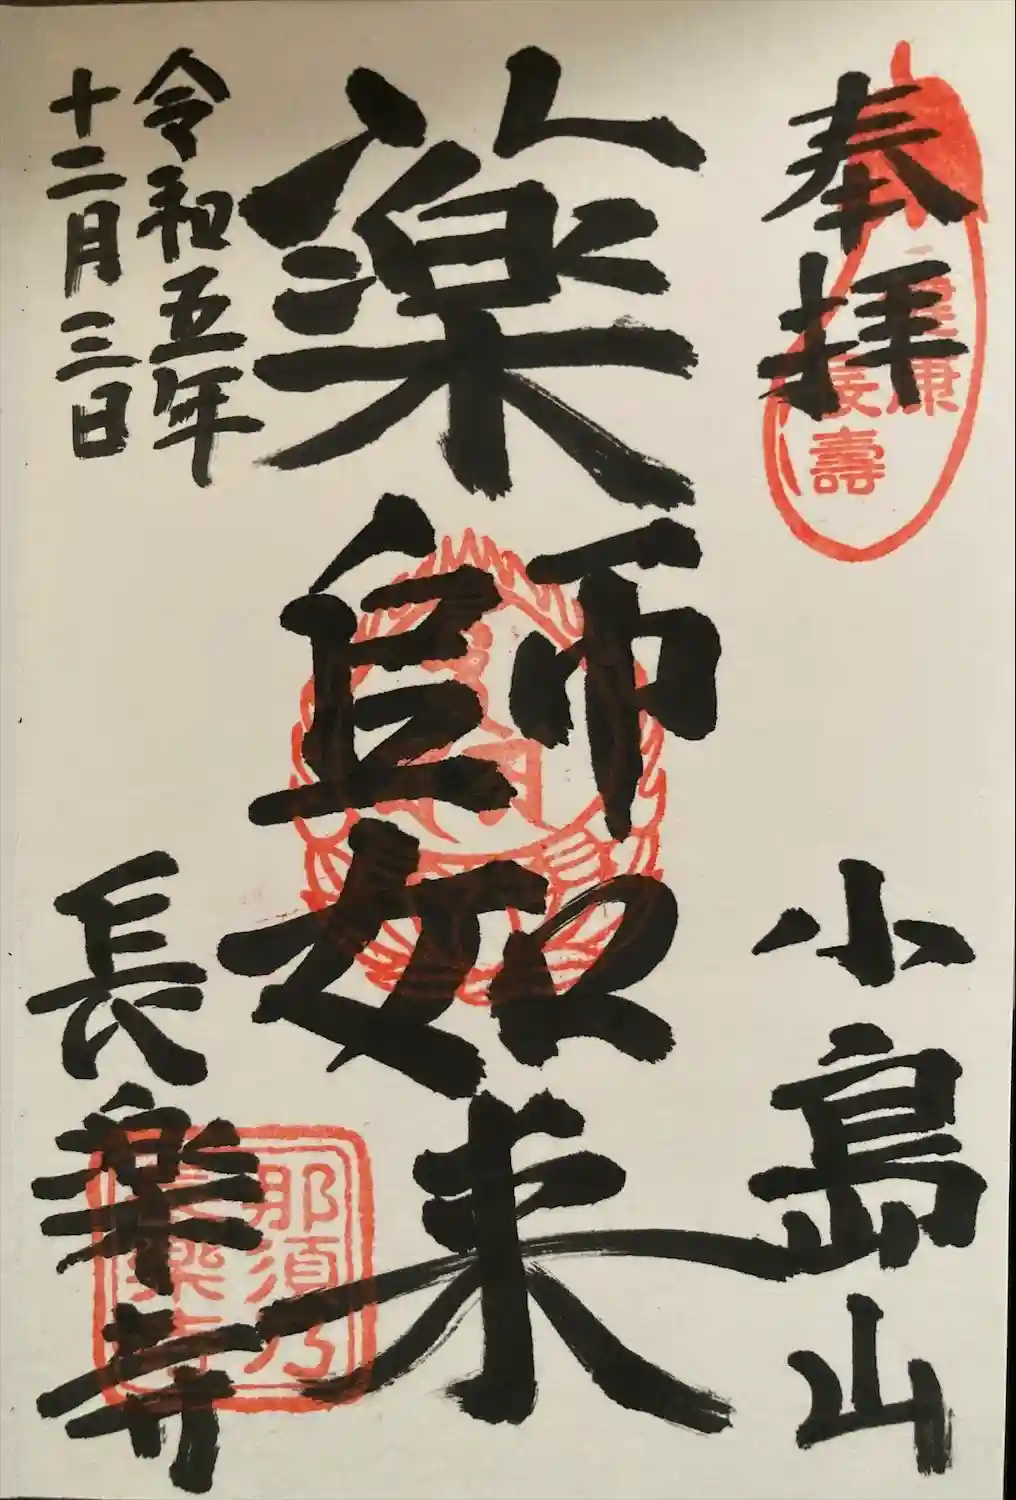 奉拝
健康
長壽
小島山
薬師如来
令和五年
十二月三日
長樂寺
那須乃
長樂寺